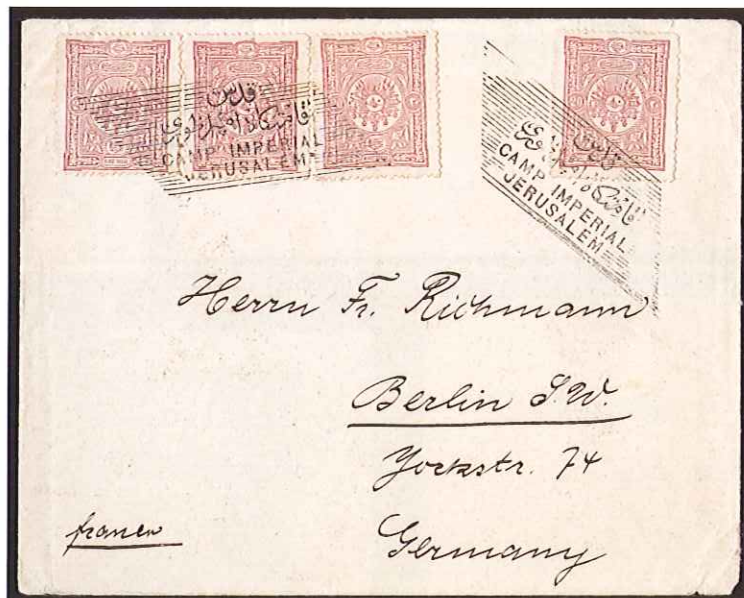 قدس
CAMP IMPERIAL
JERUSALEM
قدس
CAMP IMPERIAL
JERUSALEM
20
Herrn Fr. Richmann
Berlin S.W.
Yorkstr. 74
Germany
franco